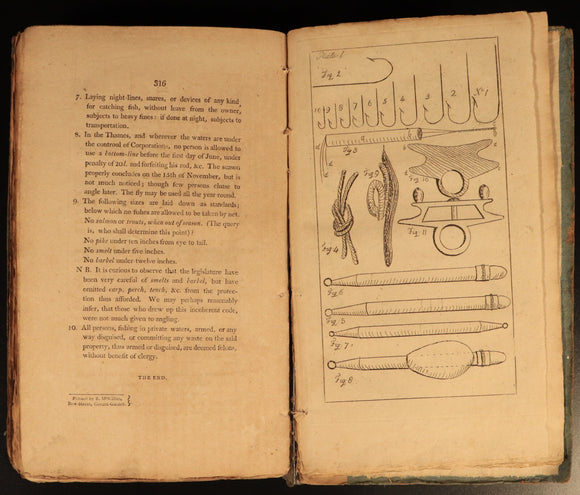 316
7. Laying night-lines, snares, or devices of any kind
for catching fish, without leave from the owner,
subjects to heavy fines: if done at night, subjects to
transportation.
8. In the Thames, and wherever the waters are under
the controul of Corporations, no person is allowed to
use a bottom-line before the first day of June, under
penalty of 20l. and forfeiting his rod, &c. The season
properly concludes on the 15th of November, but is
not much noticed; though few persons chuse to
angle later. The fly may be used all the year round.
9. The following sizes are laid down as standards;
below which no fishes are allowed to be taken by net.
No salmon or trouts, when out of season. (The query
is, who shall determine this point)?
No pike under ten inches from eye to tail.
No smelt under five inches.
No barbel under twelve inches.
N B. It is curious to observe that the legislature have
been very careful of smelts and barbel, but have
omitted carp, perch, tench, &c. from the protec-
tion thus afforded. We may perhaps reasonably
infer, that those who drew up this incoherent code,
were not much given to angling.
10. All persons, fishing in private waters, armed, or any
way disguised, or committing any waste on the said
property, thus armed or disguised, are deemed felons,
without benefit of clergy.
THE END.
Printed by B. McMillan,
Bow-Street, Covent-Garden.
Plate 1
Fig 2
10 9 8 7 6 5 4 3 2 No 1
Fig 3
Fig 9
Fig 10
Fig 4
Fig 11
Fig 6
Fig 5
Fig 7
Fig 8